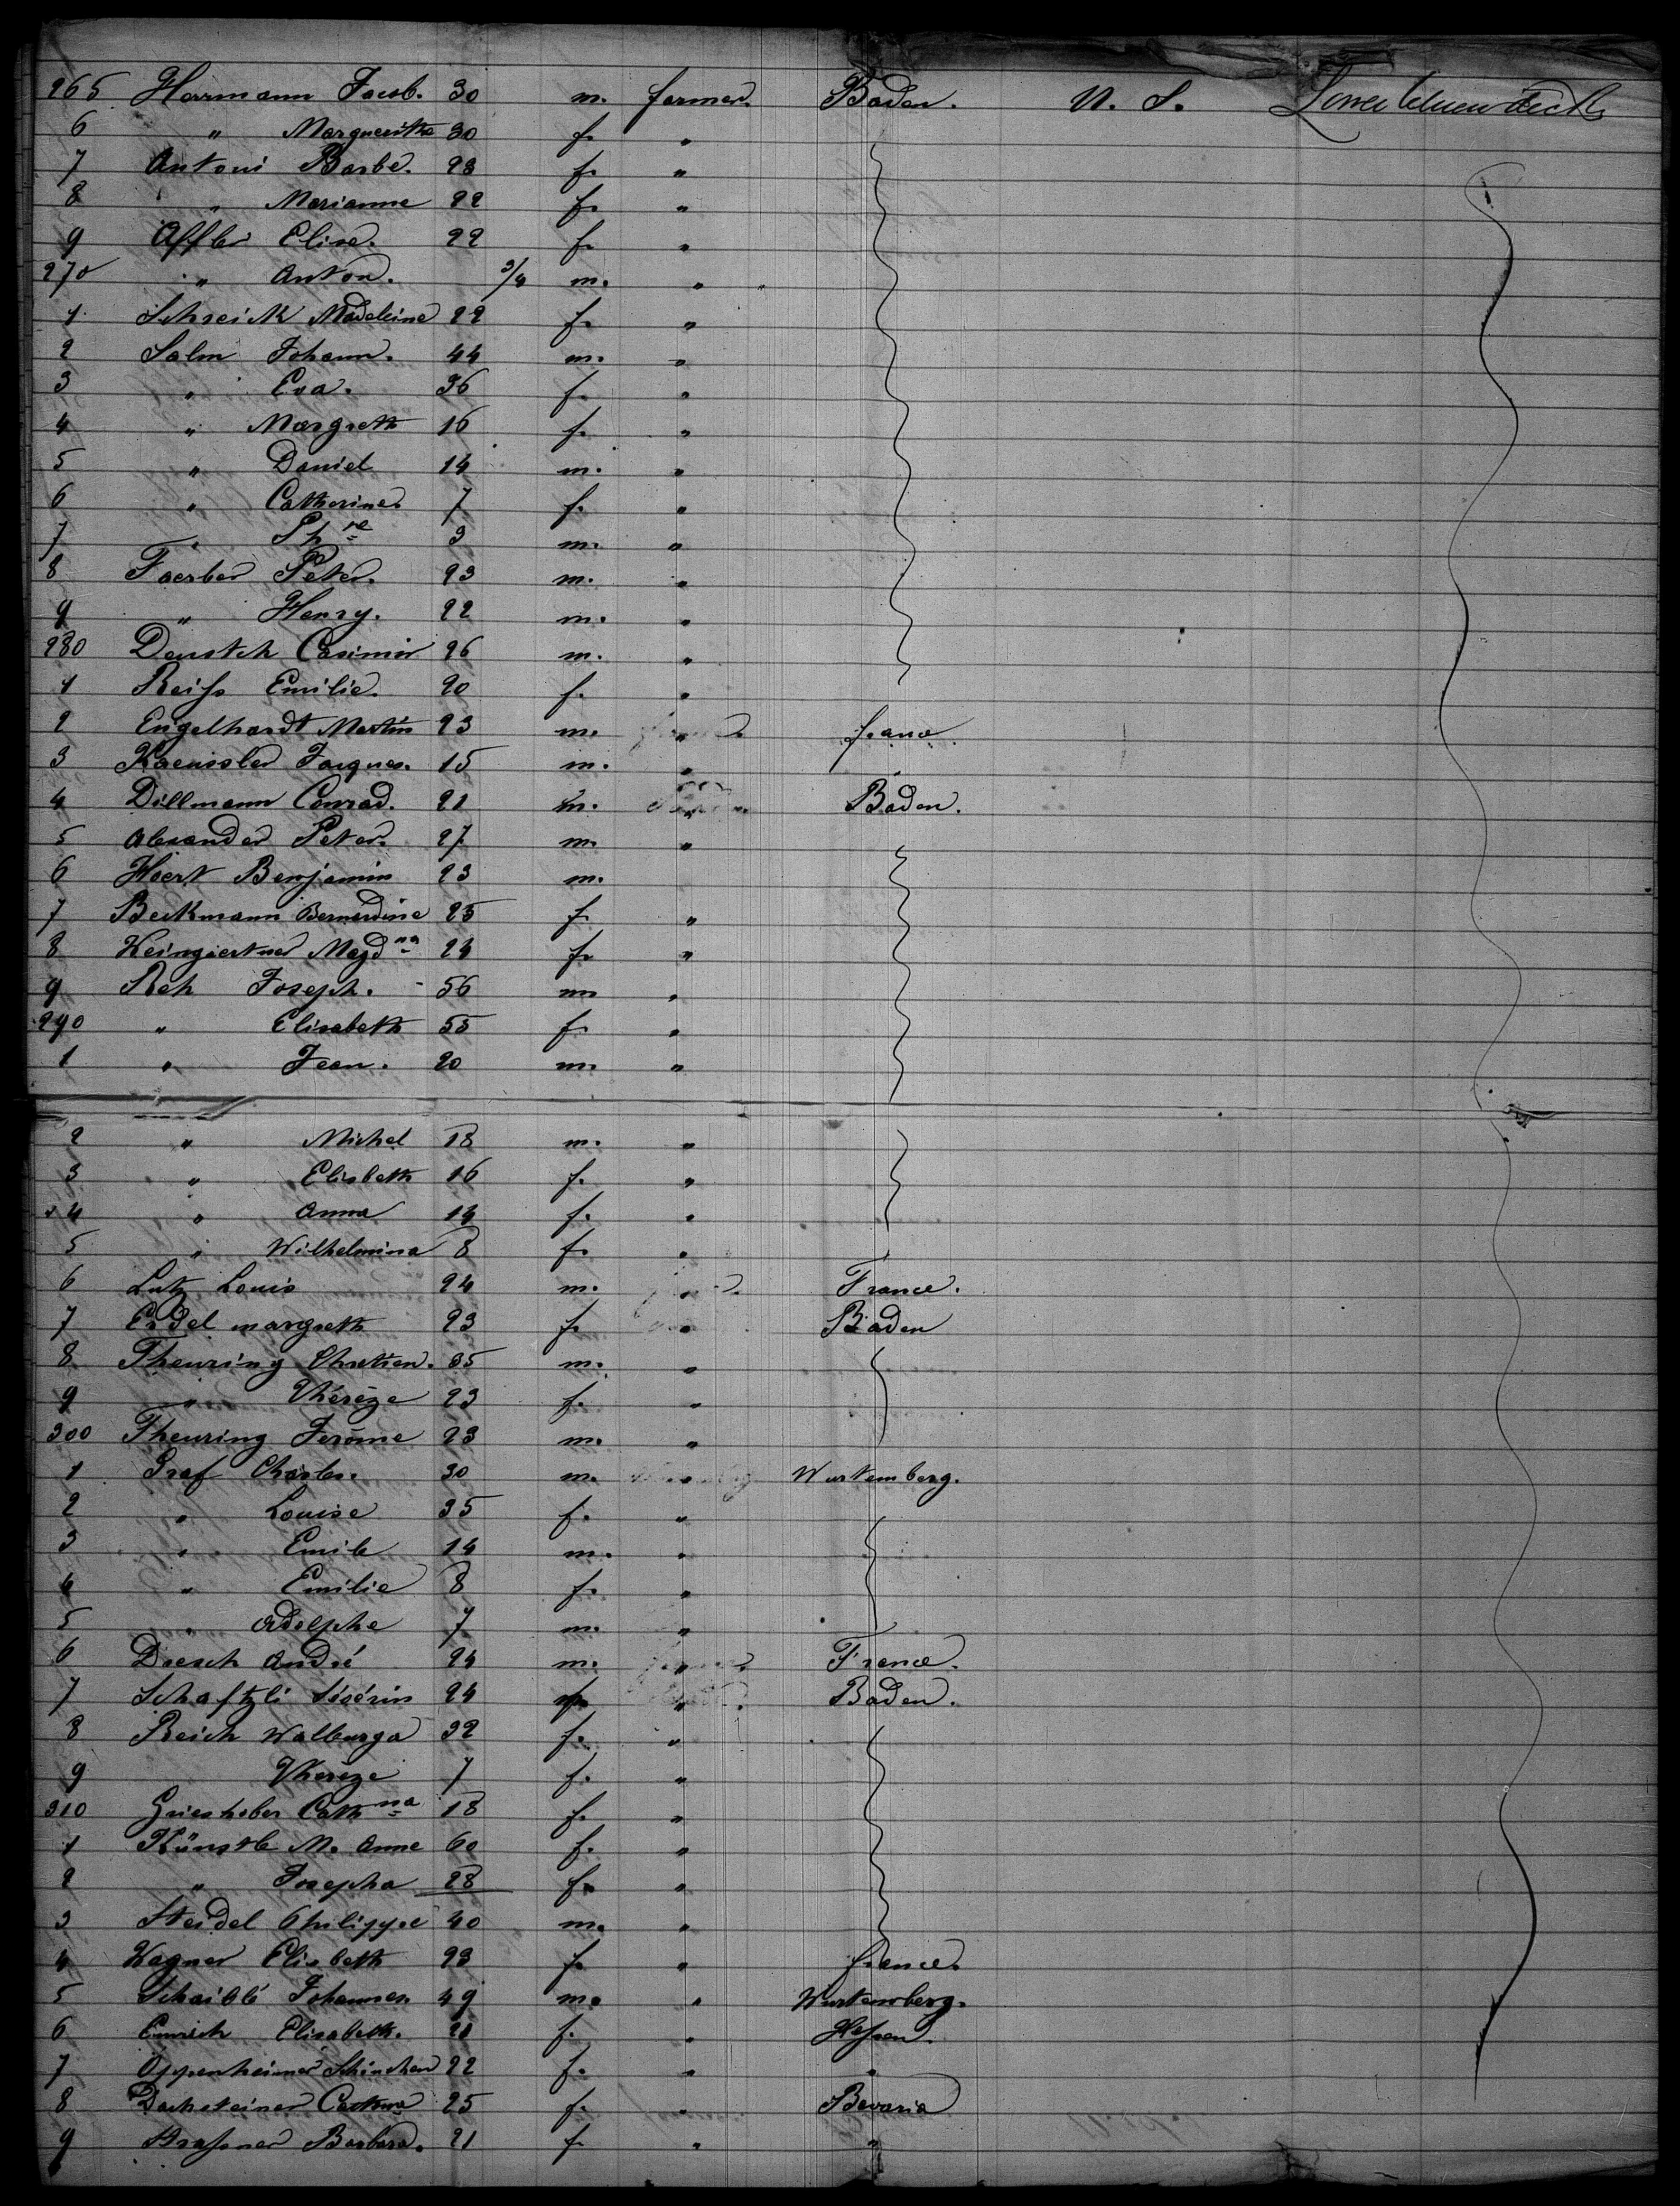 265 Herrmann Jacob. 30 m. farmer. Baden. U. S. Lower between deck
6 " Marguerithe 30 f. "
7 Antoni Barbe. 23 f. "
8 " Marianne 22 f. "
9 Affler Elise. 22 f. "
270 " Anton. 3/4 m. " "
1 Schreick Madeleine 22 f. "
2 Salm Johann. 44 m. "
3 " Eva. 36 f. "
4 " Margreth 16 f. "
5 " Daniel 14 m. "
6 " Catherine. 7 f. "
7 " Ph re 3 m. "
8 Faerber Peter. 23 m. "
9 " Henry. 22 m. "
280 Deustch Casimir 26 m. "
1 Reiss Emilie. 20 f. "
2 Engelhardt Martin 23 m. " france
3 Kaeussler Jacques. 15 m. " "
4 Dillmann Conrad. 21 m. " Baden.
5 Alexander Peter. 27 m. "
6 Hoert Benjamin 23 m.
7 Beckmann Bernerdine 25 f. "
8 Weingaertner Magd na 24 f. "
9 Reh Joseph. 56 m. "
290 " Elisabeth 55 f. "
1 " Jean. 20 m. "
2 " Michel 18 m. "
3 " Elisbeth 16 f. "
4 " Anna 14 f. "
5 " Wilhelmina 8 f. "
6 Lutz Louis 24 m. " France.
7 Erdel margreth 23 f. " Baden
8 Theuring Chretien. 35 m. "
9 " Thérèze 23 f. "
300 Theuring Jerôme 23 m. "
1 Graf Charles. 30 m. " Wurtemberg.
2 " Louise 35 f. "
3 " Emile 14 m. "
4 " Emilie 8 f. "
5 " Adolphe 7 m. "
6 Dresch André 24 m. " France.
7 Schaftzli Sévérin 24 m. " Baden.
8 Reich Walburga 32 f. "
9 Thereze 7 f. "
310 Grieshaber Cath na 18 f. "
1 Künstle M. Anne 60 f. "
2 " Josepha 28 f. "
3 Steidel Philippe 40 m. "
4 Wagner Elisbeth 23 f. " france.
5 Schaiblé Johannes 49 m. " Wurtemberg.
6 Emrich Elisabeth. 21 f. " Hessen.
7 Oppenheimer Schinchen 22 f. " "
8 Dachsteiner Cathna 25 f. " Bavaria
9 Strassner Barbara. 21 f. " "